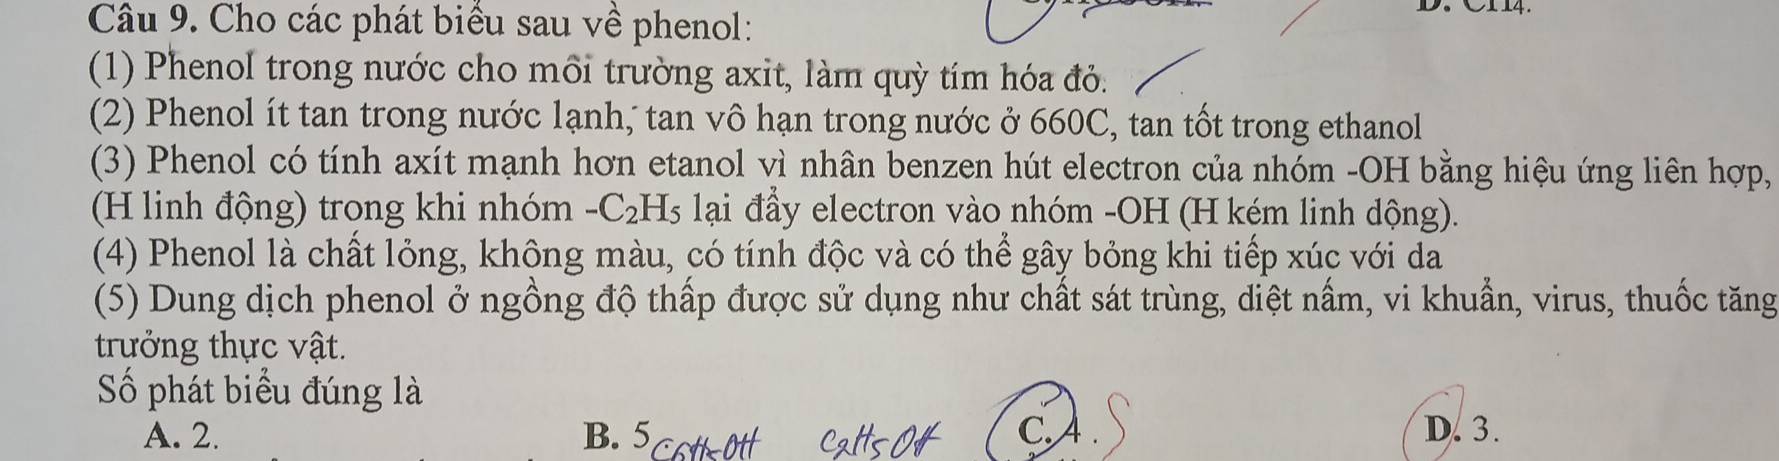 Câu 9. Cho các phát biểu sau về phenol:
(1) Phenol trong nước cho môi trường axit, làm quỳ tím hóa đỏ.
(2) Phenol ít tan trong nước lạnh, tan vô hạn trong nước ở 660C, tan tốt trong ethanol
(3) Phenol có tính axít mạnh hơn etanol vì nhân benzen hút electron của nhóm -OH bằng hiệu ứng liên hợp,
(H linh động) trong khi nhóm -C₂H₅ lại đẩy electron vào nhóm -OH (H kém linh dộng).
(4) Phenol là chất lỏng, không màu, có tính độc và có thể gây bỏng khi tiếp xúc với da
(5) Dung dịch phenol ở ngồng độ thấp được sử dụng như chất sát trùng, diệt nấm, vi khuẩn, virus, thuốc tăng
trưởng thực vật.
Số phát biểu đúng là
A. 2. B. 5 C6H5OH C2H5OH C. 4. S D. 3.